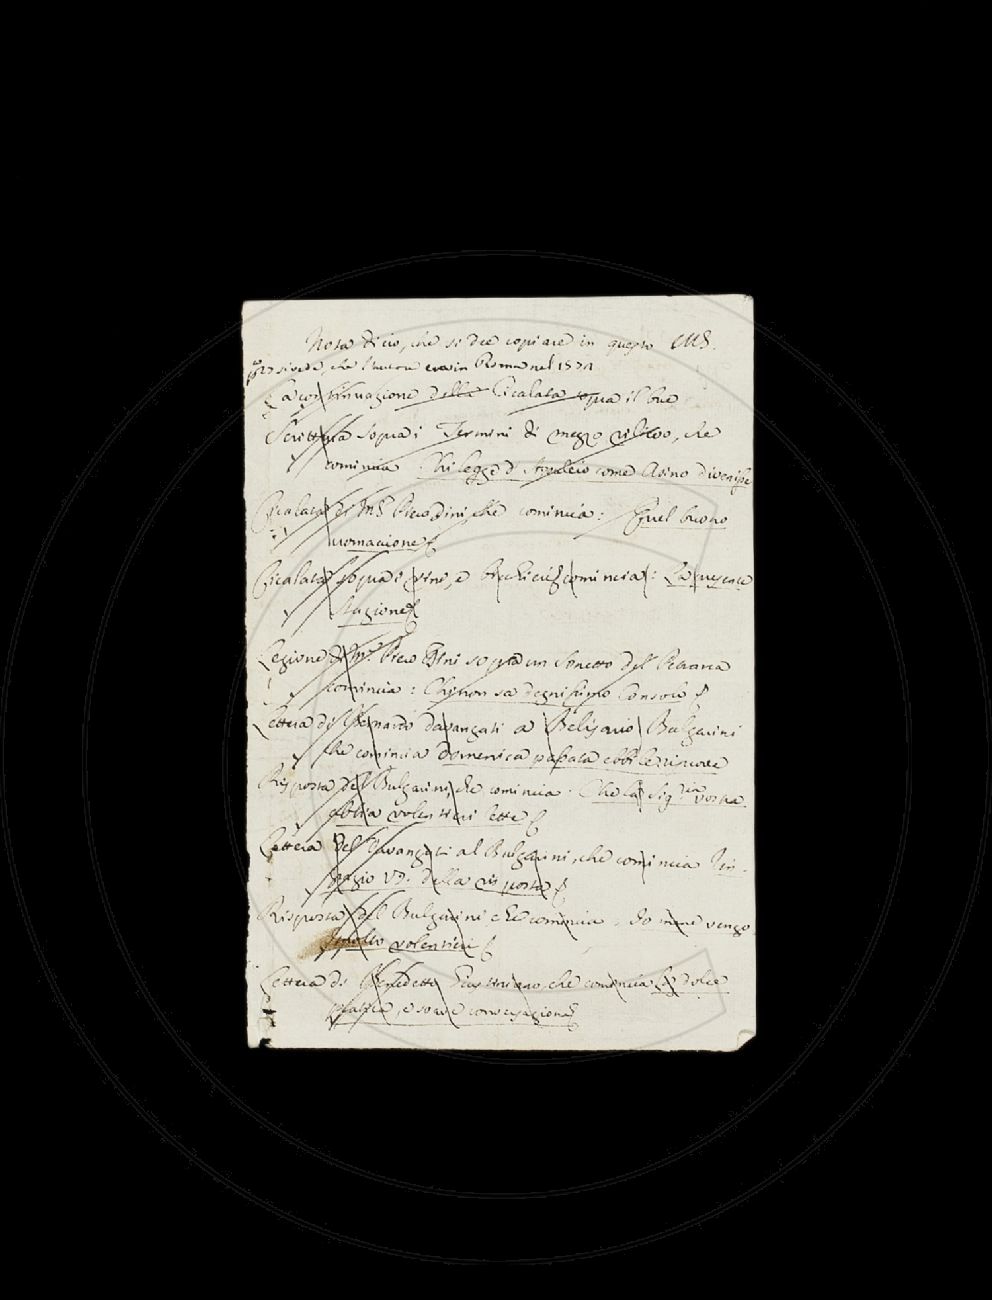 Nota di ciò, che si dee copiare in questo MS.
si vede, che l'autore era in Roma nel 1571
La continuazione della Cicalata sopra il bue
Scrittura sopra i Termini di mezzo rilievo, che
comincia Chi legge d'Apuleio come Asino divenisse
Cicalata di M. Piero Dini che comincia: Quel buono
uomaccione
Cicalata sopra i vini, e che comincia: La presente
stagione
Lezione di M. Piero Dini sopra un Sonetto del Petrarca
comincia: Chi non sa degnissimo Consolo
Lettera di Bernardo Davanzati a Belisario Bulgarini
che comincia domenica passata ebbi le
Risposta del Bulgarini, che comincia. Che la Sig.ria vostra
abbia volentieri letto
Lettera del Davanzati al Bulgarini, che comincia Rin-
grazio VS. della risposta
Risposta del Bulgarini che comincia, Io vengo
molto volentieri
Lettera di Benedetto che comincia La dolce
pratica, e soave conversazione